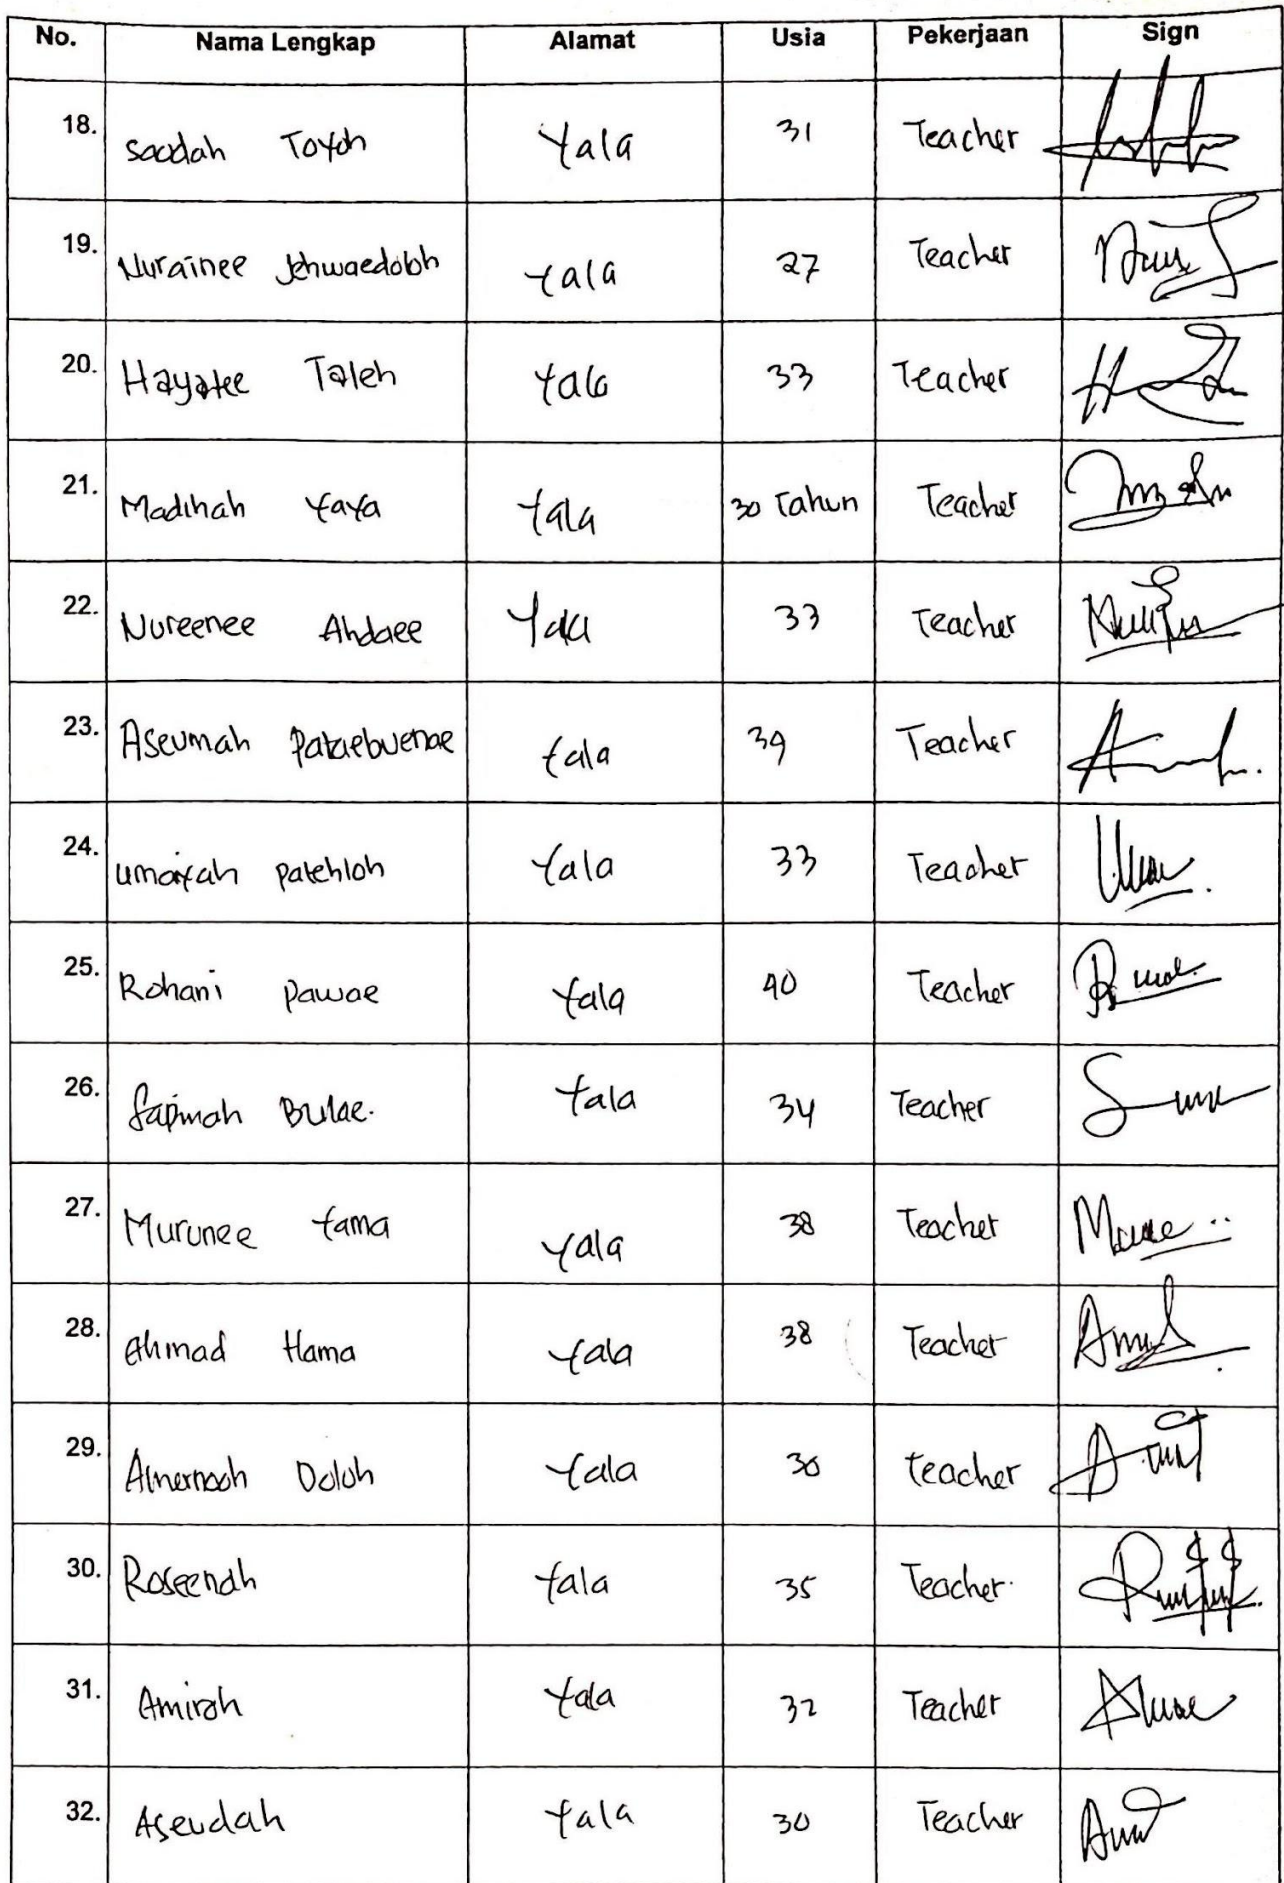 No. Nama Lengkap Alamat Usia Pekerjaan Sign
18. Saodah Toyoh Yala 31 Teacher
19. Nurainee Jehwaedoboh Yala 27 Teacher
20. Hayatee Taleh Yala 33 Teacher
21. Madihah Yaya Yala 30 Tahun Teacher
22. Nureenee Ahdaee Yala 33 Teacher
23. Aseumah Yala 39 Teacher
24. Patehloh Yala 33 Teacher
25. Rohani Pawae Yala 40 Teacher
26. Bulae. Yala 34 Teacher
27. Murunee Yama Yala 38 Teacher
28. Ahmad Hama Yala 38 Teacher
29. Doloh Yala 30 teacher
30. Roseenah Yala 35 Teacher.
31. Amirah Yala 32 Teacher
32. Aseudah Yala 30 Teacher